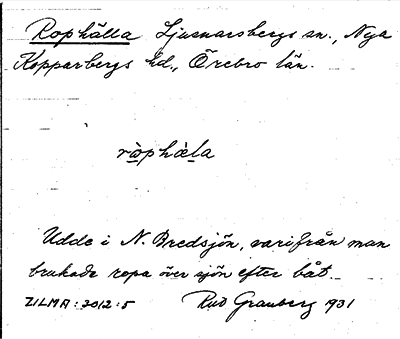 Rophälla Ljusnarsbergs sn., Nya
Kopparbergs hd., Örebro län.
ròphæ̀la
Udde i N. Bredsjön, varifrån man
brukade ropa över sjön efter båt.
ULMA: 2012:5 Rut Granberg 1931